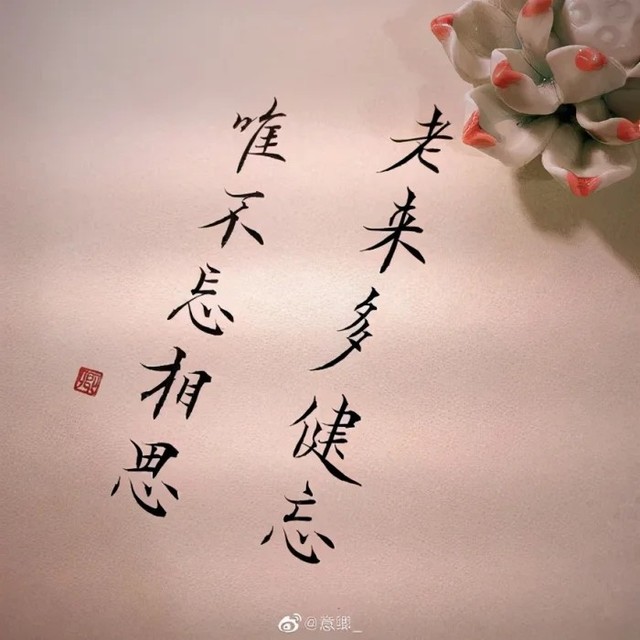 老来多健忘
唯不忘相思
卿
@意卿_